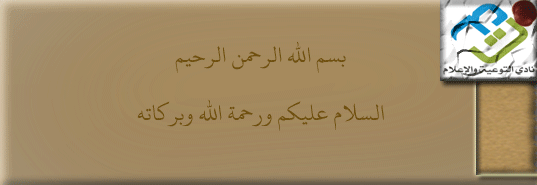 بسم الله الرحمن الرحيم
السلام عليكم ورحمة الله وبركاته
نادي التوعية والإعلام